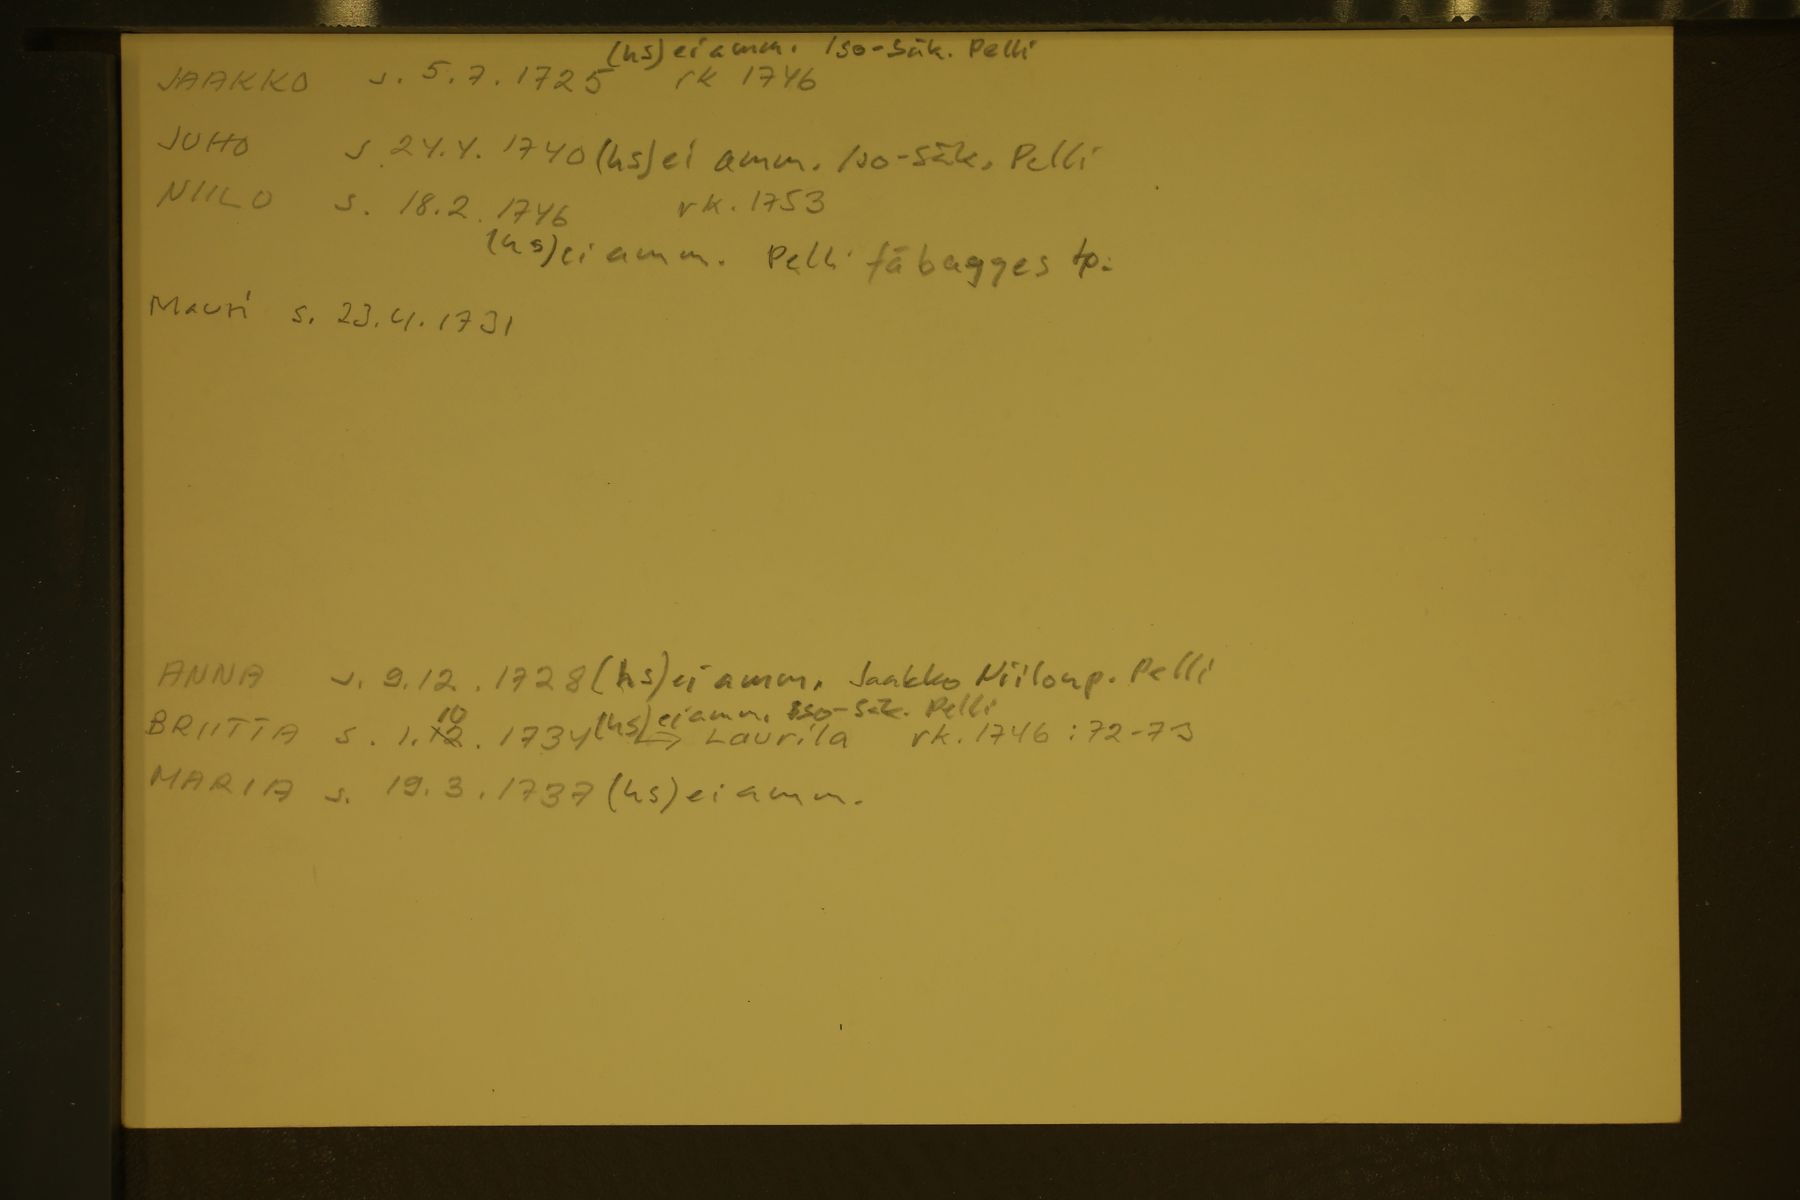 (hs) ei amm. Iso-Säk. Pelli
JAAKKO s. 5.7.1725 rk 1746
JUHO s. 24.4. 1740 (hs) ei amm. Iso-Säk. Pelli
NIILO s. 18.2.1746 rk. 1753
(hs) ei amm. Pelli fäbagges tp:
Mauri s. 23.4.1731
ANNA s. 9.12.1728 (hs) ei amm. Jaakko Niilonp. Pelli
10 (hs) ei amm. Iso-Säk. Pelli
BRIITTA s. 1.12.1734 → Laurila rk. 1746:72-73
MARIA s. 19.3.1737 (hs) ei amm.